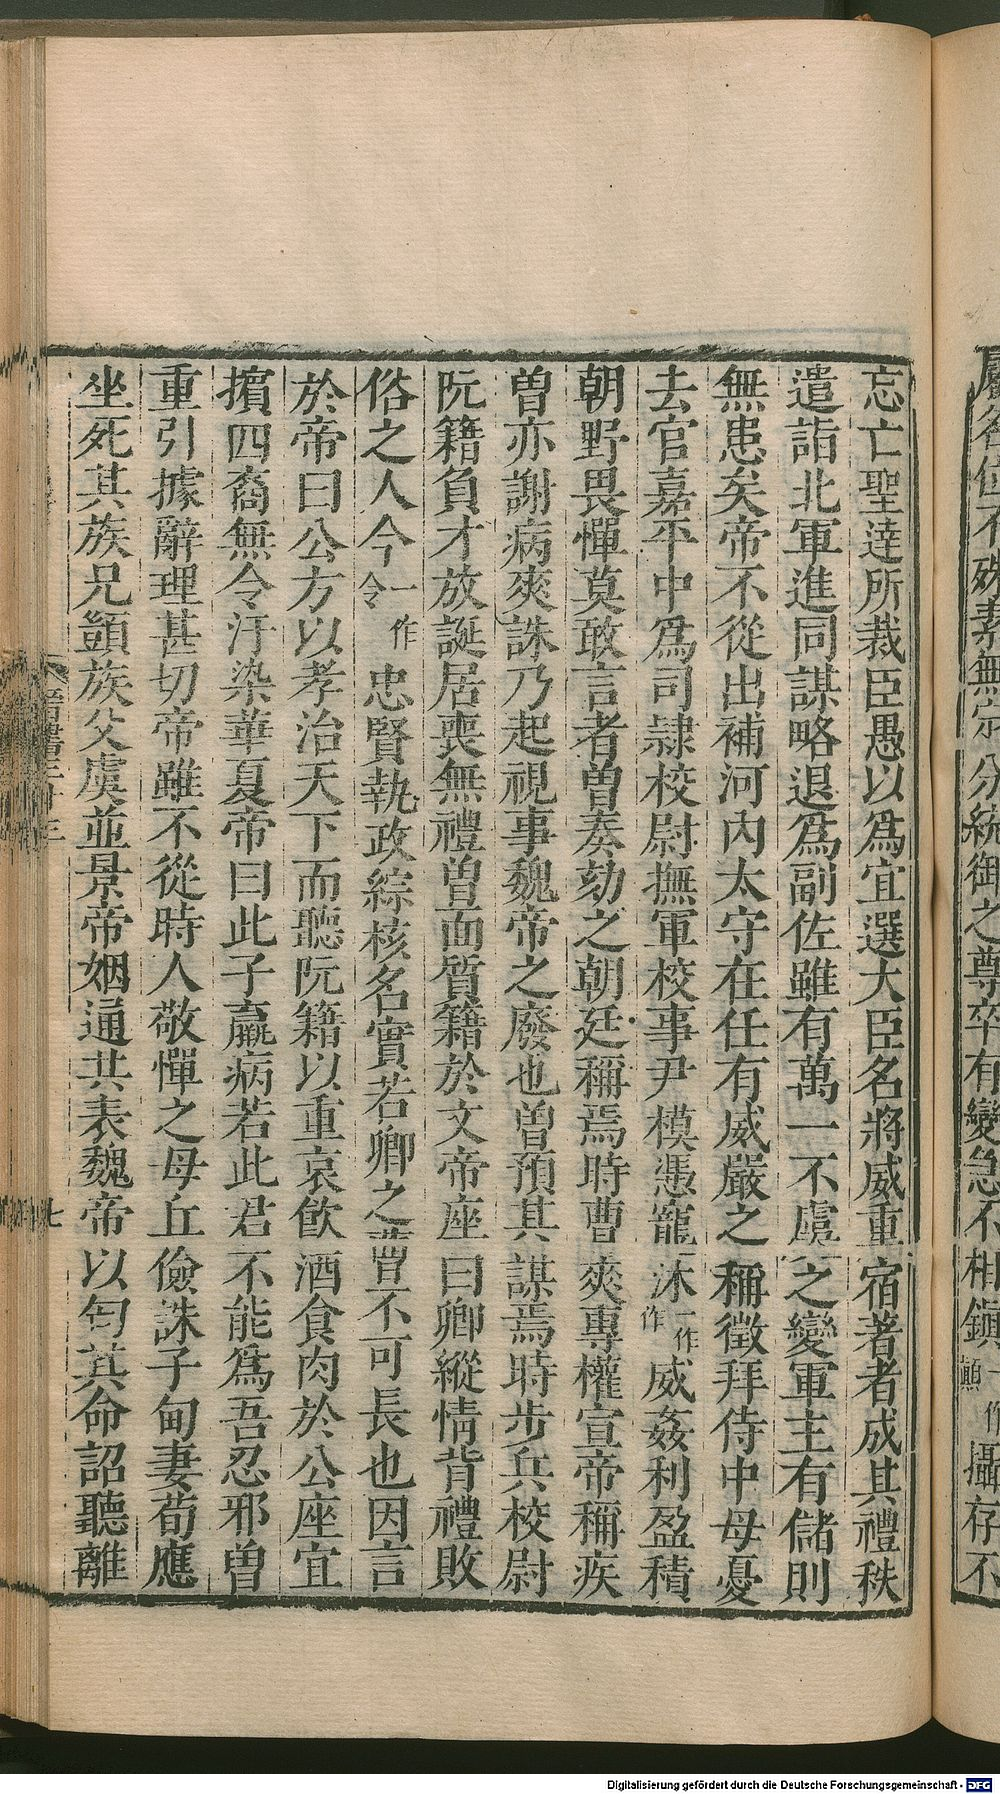 分統御之尊卒有變急不相鎮一作顛攝存不
忘亡聖達所裁臣愚以爲宜選大臣名將威重宿著者成其禮秩
遣詣北軍進同謀略退爲副佐雖有萬一不虞之變軍主有儲則
無患矣帝不從出補河內太守在任有威嚴之稱徵拜侍中母憂
去官嘉平中爲司隷校尉撫軍校事尹模憑寵一作沐作威姦利盈積
朝野畏憚莫敢言者曽奏劾之朝廷稱焉時曹爽專權宣帝稱疾
曽亦謝病爽誅乃起視事魏帝之廢也曽預其謀焉時步兵校尉
阮籍負才放誕居喪無禮曽面質籍於文帝座曰卿縱情背禮敗
俗之人今一作令忠賢執政綜核名實若卿之曹不可長也因言
於帝曰公方以孝治天下而聽阮籍以重哀飮酒食肉於公座宜
擯四裔無令汙染華夏帝曰此子羸病若此君不能爲吾忍邪曽
重引據辭理甚切帝雖不從時人敬憚之母丘儉誅子甸妻荀應
坐死其族兄顗族父虞並景帝姻通共表魏帝以匄其命詔聽離
晉書三十三
七
Digitalisierung gefördert durch die Deutsche Forschungsgemeinschaft - DFG